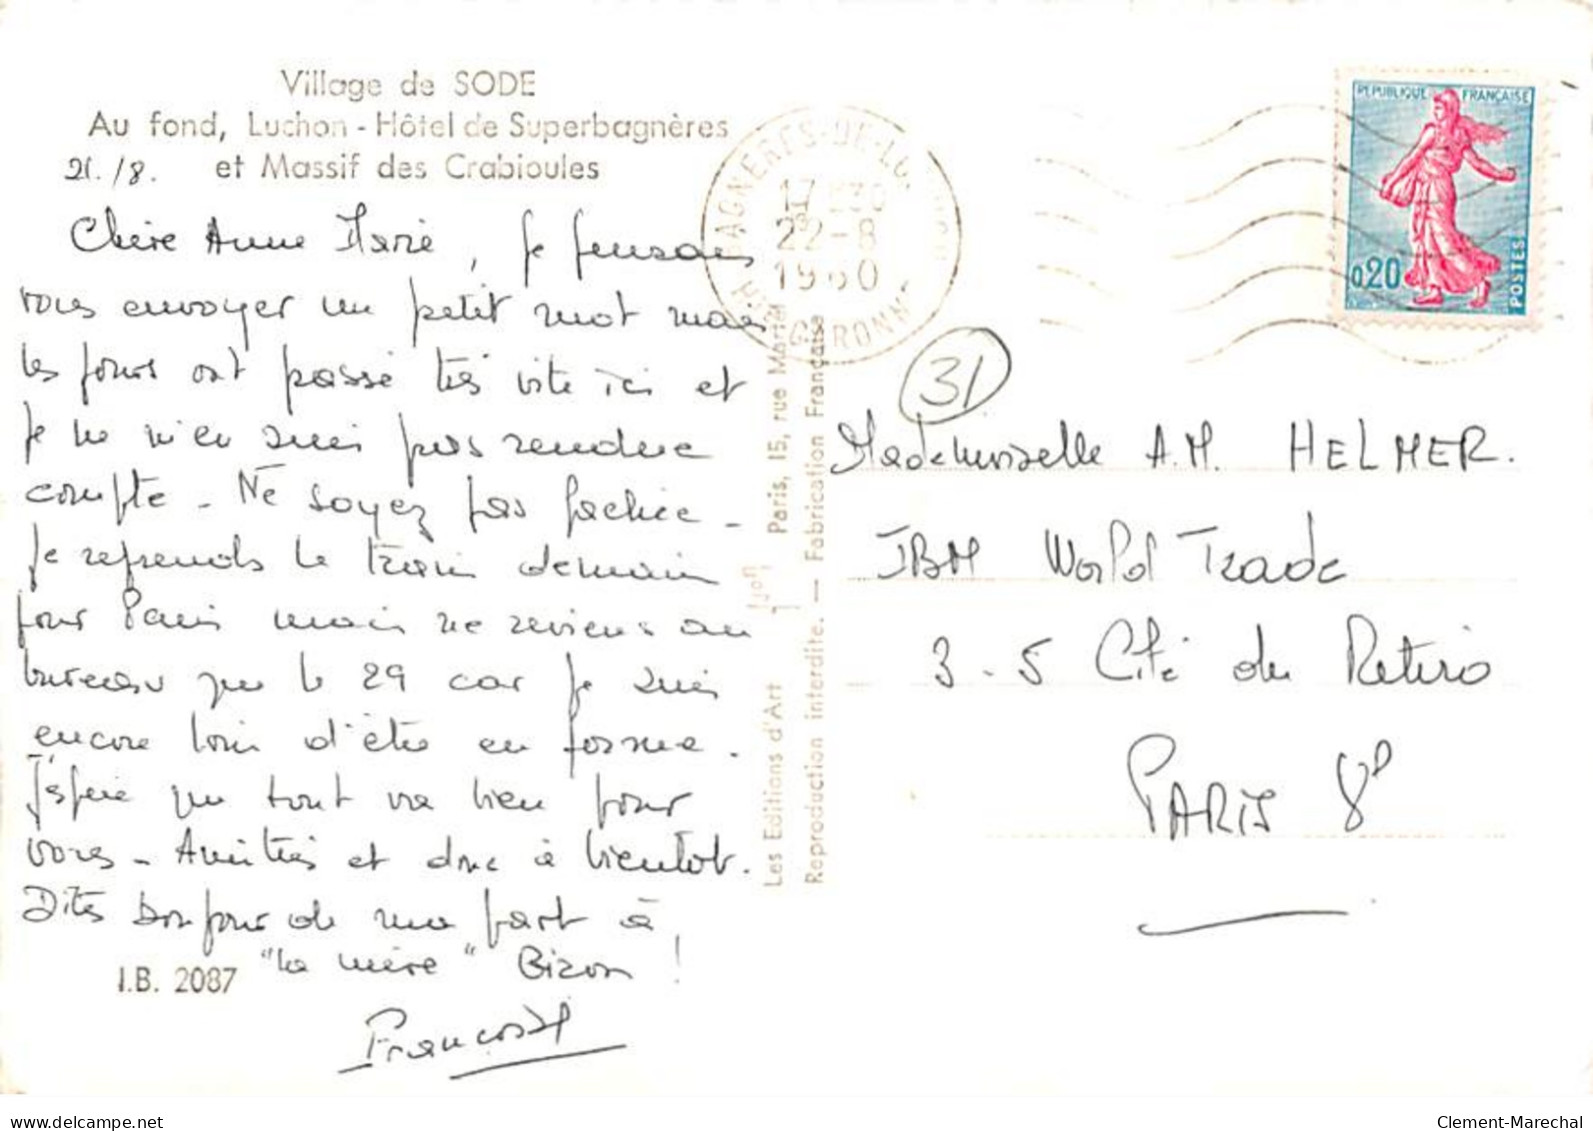 Village de SODE
Au fond, Luchon - Hôtel de Superbagnères
et Massif des Crabioules
21./8.
Chère Anne Marie, je pensais
vous envoyer un petit mot mais
les jours ont passé très vite ici et
je ne m'en suis pas rendue
compte - Ne soyez pas fachée -
Je reprends le train demain
pour Paris mais ne reviens au
bureau que le 29 car je suis
encore loin d'être en forme.
J'espère que tout va bien pour
vous - Amitiés et donc à bientôt.
Dites bonjour de ma part à
"la mère" Bizon !
I.B. 2087
Les Editions d'Art Yvon Paris, 15, rue Martel
Reproduction interdite. — Fabrication Française
BAGNERES-DE-LUCHON
17 H30
22-8
1960
HTE GARONNE
REPUBLIQUE FRANÇAISE
0,20
POSTES
31
Mademoiselle A.M. HELMER.
IBM World Trade
3-5 Cité du Retiro
PARIS 8e
delcampe.net
Clement-Marechal